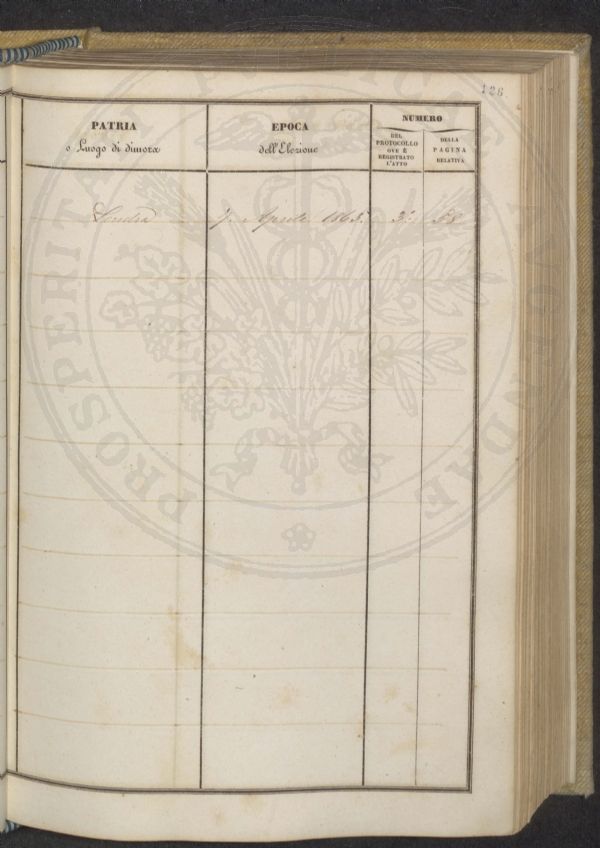 126.
PATRIA
o Luogo di dimora
EPOCA
dell'Elezione
NUMERO
DEL
PROTOCOLLO
OVE È
REGISTRATO
L'ATTO
DELLA
PAGINA
RELATIVA
Londra 7. Aprile 1863. 3° 58
PROSPERITATI PUBLICAE AUGENDAE